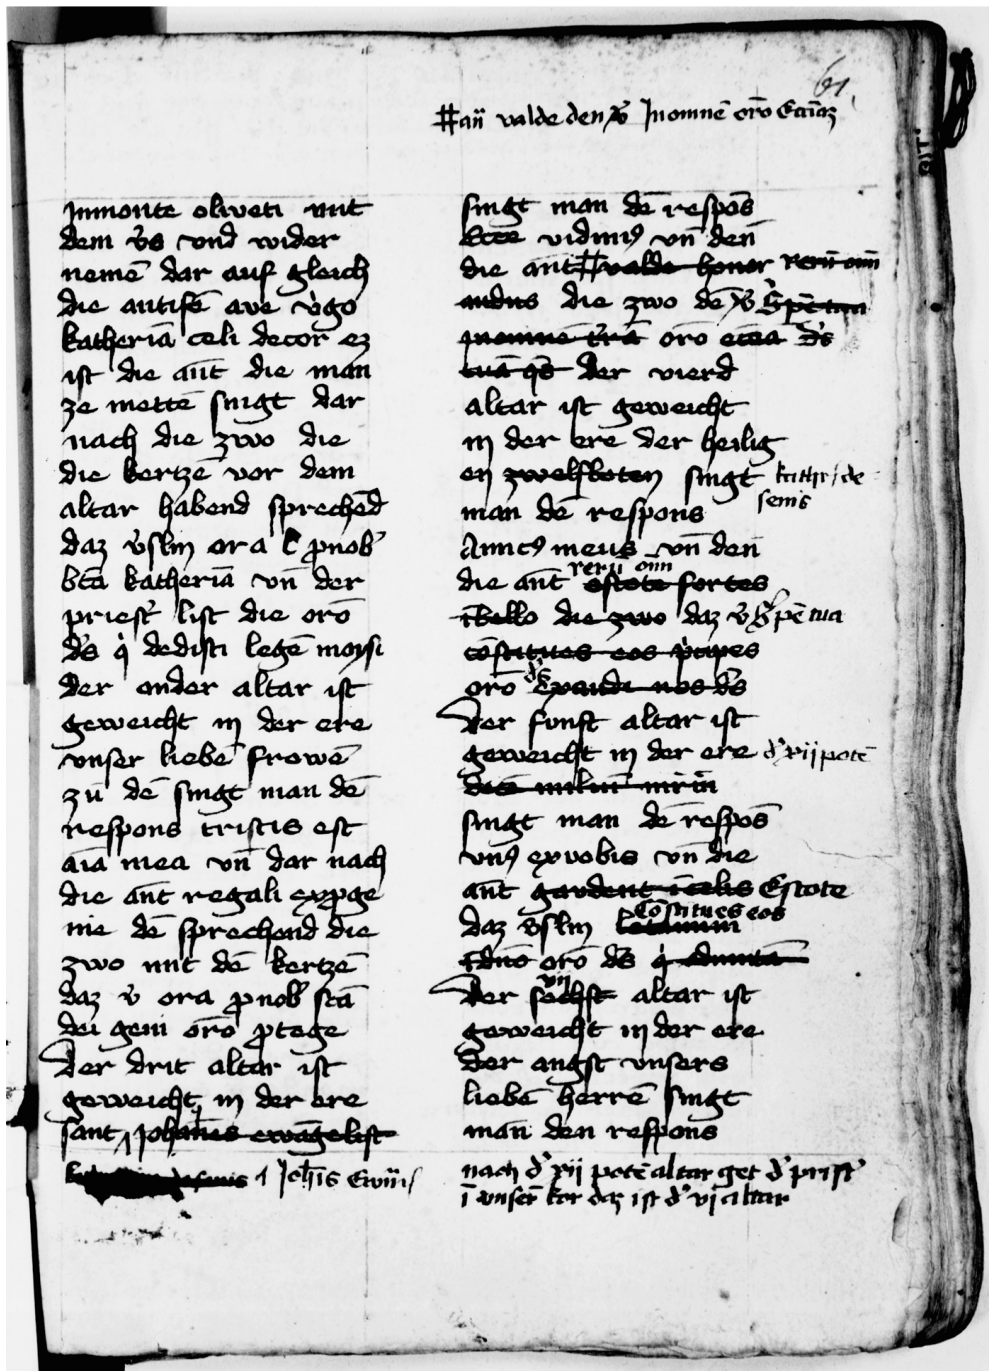 61
an̄ valde den ℣ Jn omnē orō Ecclīaz
Jnmonte oliveti mit
dem v̓s vnd wider
nemē dar auf gleich
die antifē ave v̓go
katheriā celi decor ez
ist die ānt die man
ze mettē singt dar
nach die zwo die
die kertzē vor dem
altar habend sprechēd
daz v̓slin ora p̱nob̓
btā katheriā vn̄ der
priest̓ list die orō
ds̄ q̓ dedisti legē moysi
der ander altar ist
geweicht in der ere
vnser liebē frowē
zu dē singt man dē
respons tristis est
aīa mea vn̄ dar nach
die ānt regali ex p̱ge
nie dē sprechend die
zwo mit dē kertzē
daz v̓ ora p̱nob̓ stā
dei geni orō p̱tege
der drit altar ist
geweicht in der ere
sant Johānes ewāgelist
Joh̄is Ewā
singt man dē respōs
Ecce vidimꝰ vn̄ den
die ānt valde honor Rerū om̄
andus die zwo dē ℣ S̓pētua
Jnomnē t̓rā orō ecēa ds̄
tuā qs̄ der vierd
altar ist geweicht
in der ere der heilig
en zwelfboten singt kathr̄ / de
senis
man dē respons
Amicꝰ meus vn̄ den
rerū om̄
die ānt estote fortes
ībello die zwo daz v̓ S̓pētua
cōstitues eos p̓ncipes
orō ds̓ Exaudi nos ds̄
der funft altar ist
geweicht in der ere d̓ xij potē
decē miliū mr̄m
singt man dē respōs
vnꝰ exvobis vn̄ die
ānt gaudent īcelis Estote
Cōstitues eos
daz v̓slin Letamini
īdn̄o orō ds̄ q̓
vij
der sechst altar ist
geweicht in der ere
der angst vnsers
liebē herrē singt
man den respons
nach d̓ xij potē altar get d̓ prist̓
ī vnser̄ kor daz ist d̓ vj altar